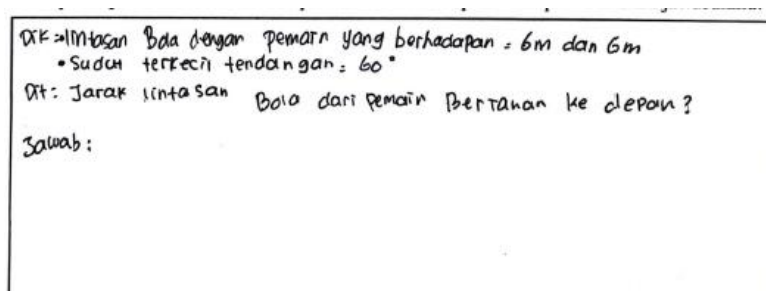 Dik: • lintasan Bola dengan pemain yang berhadapan = 6m dan 6m
• Sudut terkecil tendangan = 60°
Dit: Jarak lintasan Bola dari pemain Bertahan ke depan?
Jawab: